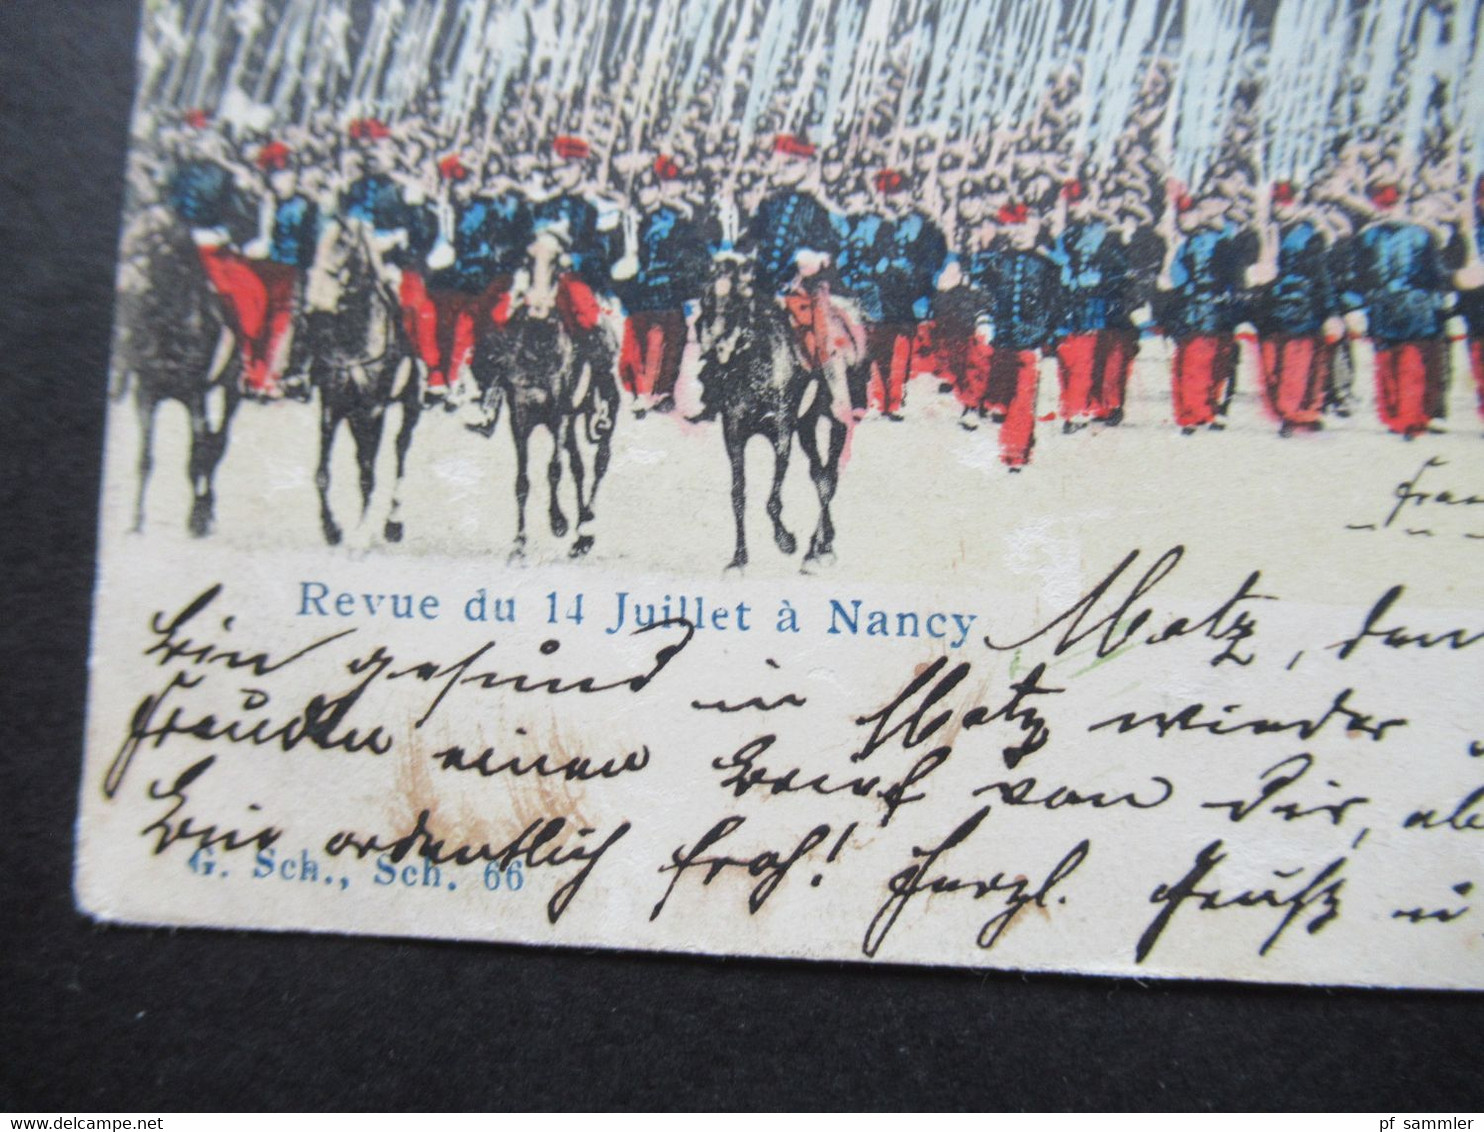 Revue du 14 Juillet à Nancy
Metz, den
Bin gesund in Metz wieder
Freuden einen Brief von Dir, abe
Bin ordentlich froh! Herzl.
G. Sch., Sch. 66
www.delcampe.net
pf_sammler